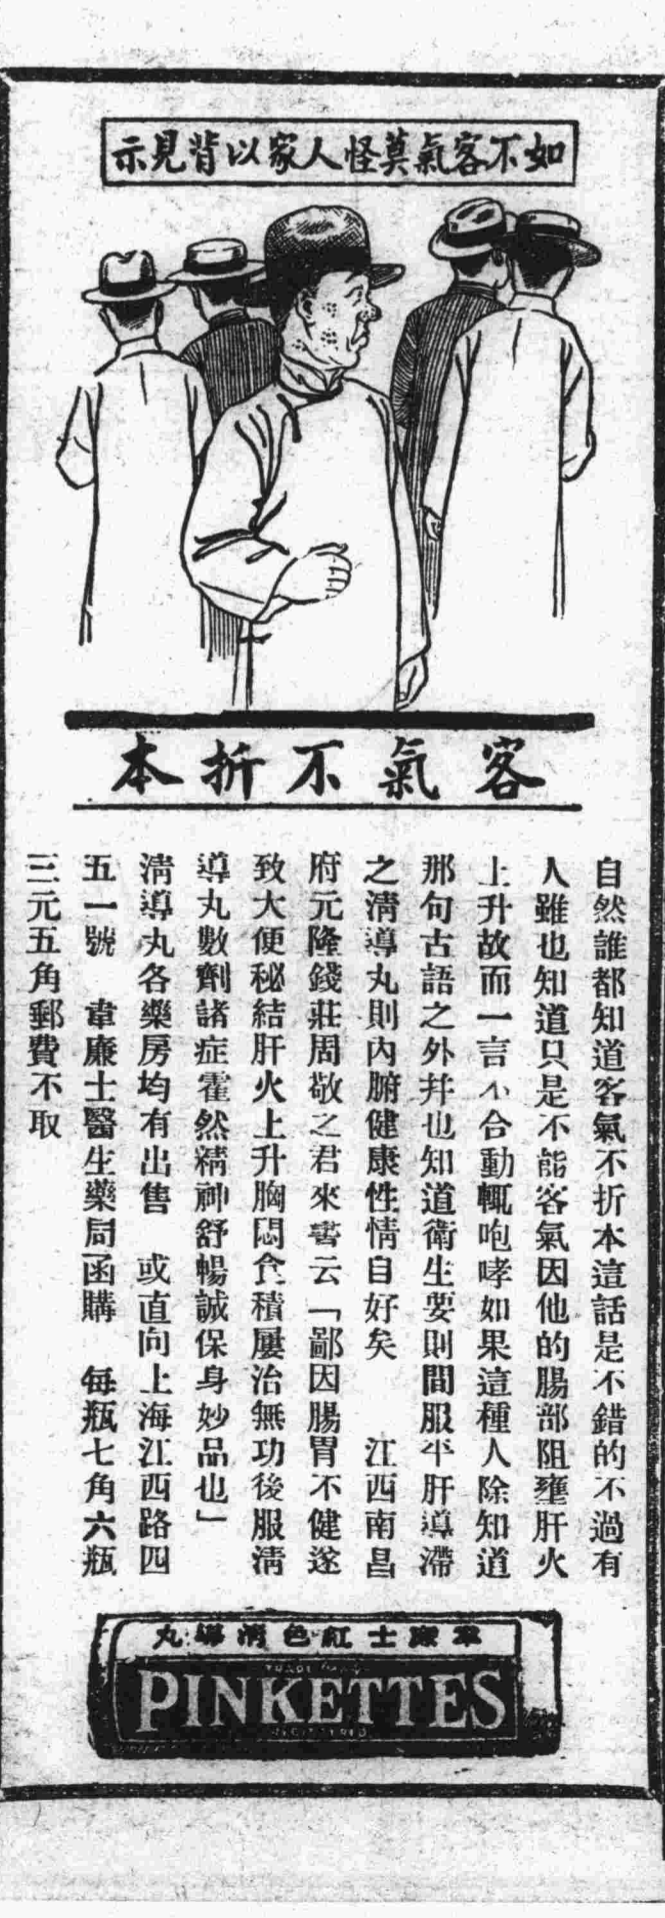 如不客氣莫怪人家以背見示
客氣不折本
自然誰都知道客氣不折本這話是不錯的不過有
人雖也知道只是不能客氣因他的腸部阻壅肝火
上升故而一言不合動輒咆哮如果這種人除知道
那句古語之外幷也知道衛生要則間服平肝導滯
之清導丸則內腑健康性情自好矣　江西南昌
府元隆錢莊周敬之君來書云「鄙因腸胃不健遂
致大便秘結肝火上升胸悶食積屢治無功後服清
導丸數劑諸症霍然精神舒暢誠保身妙品也」
清導丸各藥房均有出售　或直向上海江西路四
五一號　韋廉士醫生藥局函購　每瓶七角六瓶
三元五角郵費不取
韋廉士紅色清導丸
TRADE MARK
PINKETTES
REGISTERED